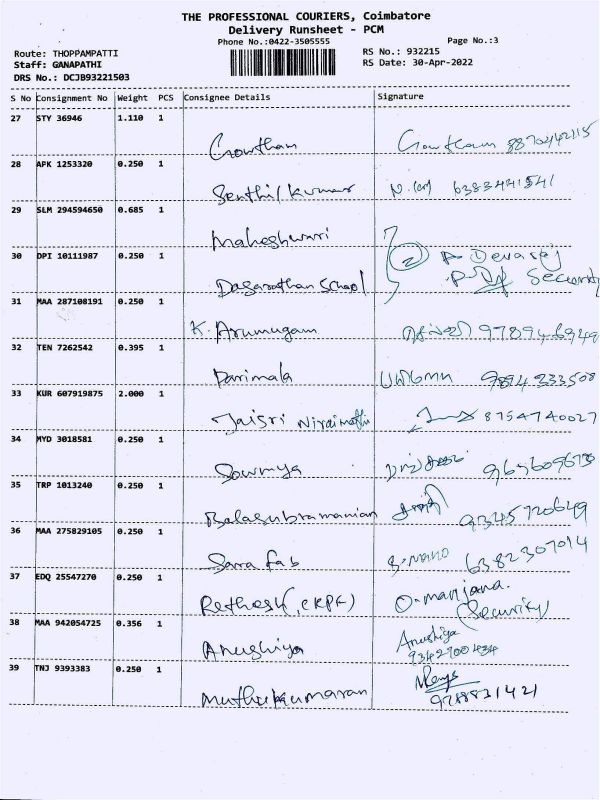 THE PROFESSIONAL COURIERS, Coimbatore
Delivery Runsheet - PCM
Phone No.:0422-3505555
Page No.:3
Route: THOPPAMPATTI
RS No.: 932215
Staff: GANAPATHI
RS Date: 30-Apr-2022
DRS No.: DCJB93221503
S No Consignment No Weight PCS Consignee Details Signature
27 STY 36946 1.110 1
Gowtham Gowtham
28 APK 1253320 0.250 1
Senthil kumar 6383441541
29 SLM 294594650 0.685 1
Maheshwari
30 DPI 10111987 0.250 1
2 P. Devaraj
Dasarathan School Security
31 MAA 287108191 0.250 1
K. Arumugam 9789446949
32 TEN 7262542 0.395 1
Parimala பரிமளா 9894333508
33 KUR 607919875 2.000 1
Jaisri Niraimathi 8754740027
34 MYD 3018581 0.250 1
Sowmya
35 TRP 1013240 0.250 1
Balasubramanian 9345720649
36 MAA 275829105 0.250 1
Sara fab S-mano 6382307014
37 EDQ 25547270 0.250 1
Rethesh (CRPF) O-manjana.
(Security)
38 MAA 942054725 0.356 1
Anushiya Anushiya
9342700434
39 TNJ 9393383 0.250 1
Muthukkumaran 9788831421